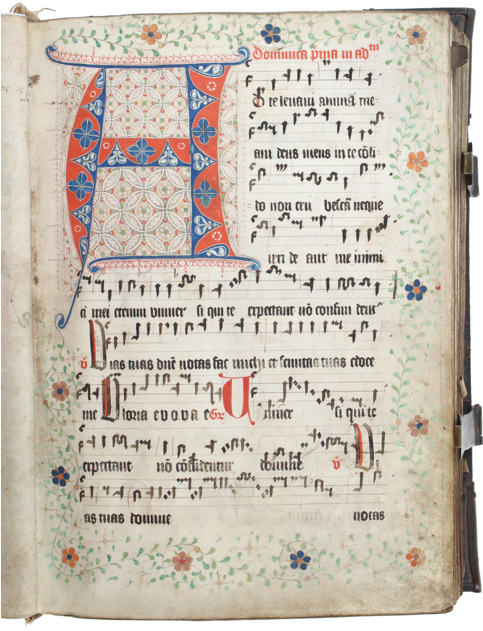 Dominica p̄ma in adtꝰ
A D te levavi animā me
am deus meus in te cōfi
do non eru besca neque
irri de ant me inimi
ci mei etenim univer si qui te expectant nō confun dent̄
v̄ Vias tuas dn̄e notas fac michi et semitas tuas edoce
me Gloria e v o v a e Gr̄ Univer si qui te
expectant nō cōfūdentur domine v̄ V
as tuas domine notas